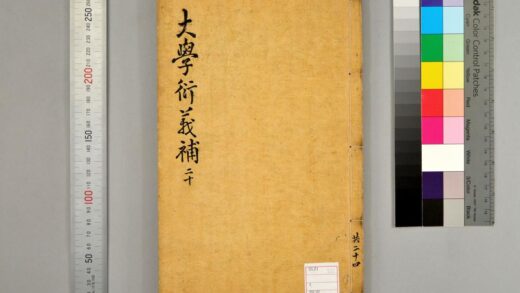 大學衍義補 二十
共二十四
250
200
150
100
50
Kodak
Color Control Patches
Cyan
Green
Yellow
Red
Magenta
White
3/Color
Black